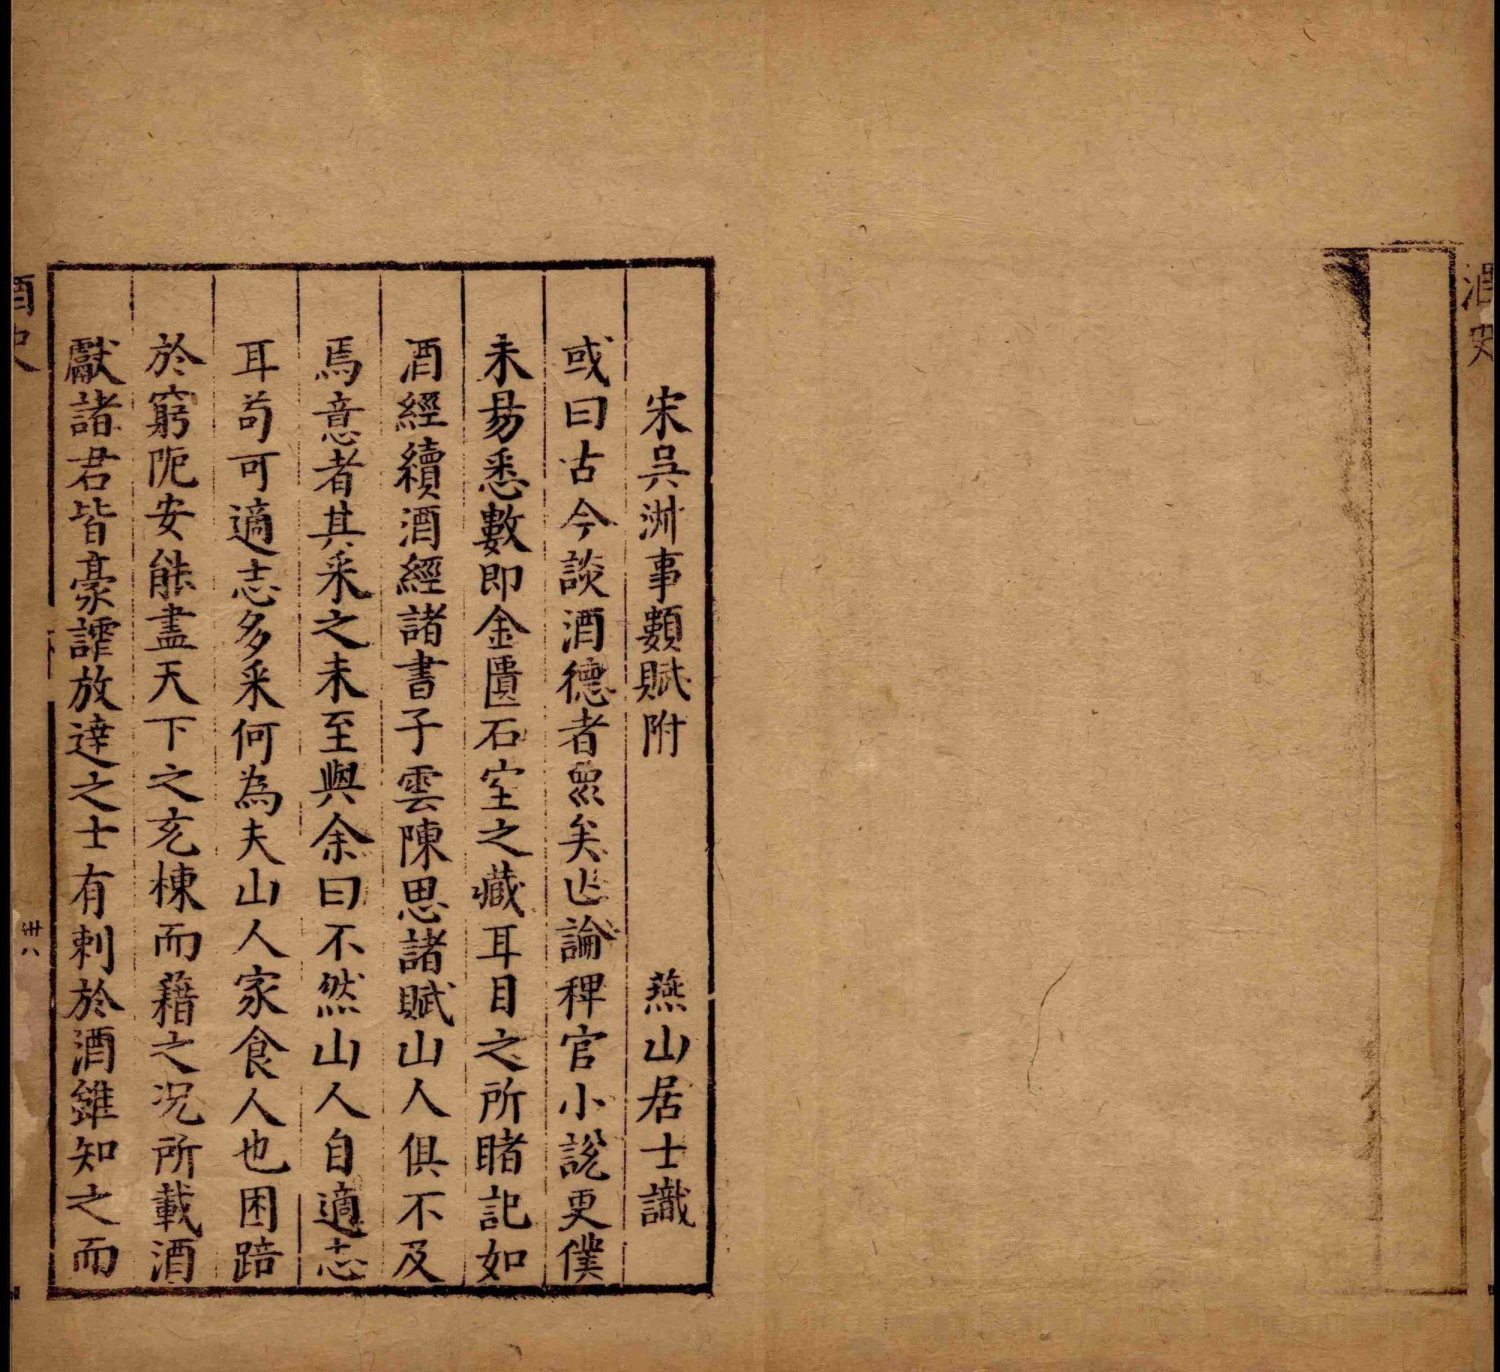 酒史
宋吳淑事類賦附 燕山居士識
或曰古今談酒德者眾矣迮論稗官小說更僕
未易悉數即金匱石室之藏耳目之所睹記如
酒經續酒經諸書子雲陳思諸賦山人俱不及
焉意者其采之未至與余曰不然山人自適志
耳苟可適志多采何為夫山人家食人也困踣
於窮阨安能盡天下之充棟而藉之況所載酒
獻諸君皆豪謔放達之士有刺於酒雖知之而
酒史
卅八